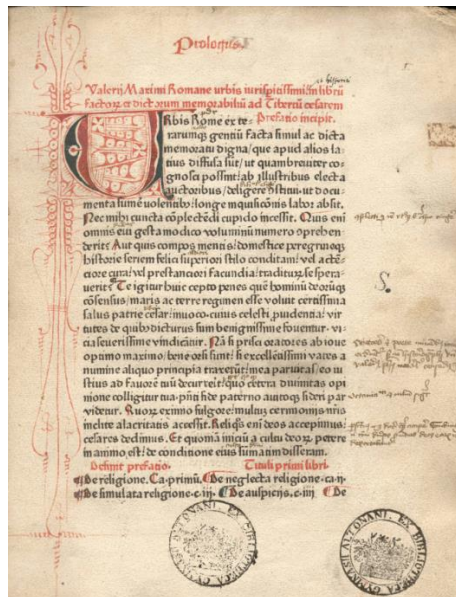 Prologus.
Valerij Maximi Romane urbis iurisperitissimi in librū
factoꝝ et dictorum memorabiliū ad Tiberiū cesarem
Prefatio incipit.
Urbis Rome exte-
rarumqꝫ gentiū facta simul ac dicta
memoratu digna/que apud alios la-
tius diffusa sūt/ut quam breuiter co-
gnosci possint/ab illustribus electa
auctoribus/deligere ut docu-
menta sumē uolentibꝰ/longe inquisicōnis labor absit.
Nec mihi cuncta cōplectēdi cupido incessit. Quis enī
omnis eui gesta modico voluminū numero
Aut quis compos mentis/domestice peregrineqꝫ
historie seriem felici superiori stilo conditam/vel
ciore cura/vel prestanciori facundia/traditurū se spera-
uerit Te igitur huic cepto penes quē hominū deorūqꝫ
cōsensus/maris ac terre regimen esse voluit certissima
salus patrie cesar/inuoco. cuius celesti ꝓuidentia/vir
tutes de quibꝰ dicturus sum benignissime fouentur. vi-
cia seuerissime vindicātur. Nā si prisci oratores ab ioue
optimo maximo/bene orsi sunt/si excellētissimi vates a
numine aliquo principia traxerūt/mea paruitas/eo iu
stius ad fauorē tuū decurrerit/quo cetera diuinitas opi
nione colligitur tua pn̄ti fide paterno auitoqꝫ sideri par
videtur. Quoꝝ eximo fulgore/multū cerimonijs nr̄is
inclite alacritatis accessit. Reliqs̄ enī deos accepimus/
cesares dedimus. Et quoniā iniciū a cultu deoꝝ petere
in animo est/de conditione eius sumatim disseram.
Desinit prefatio. Tituli primi libri.
De religione. Ca. primū. De neglecta religione. ca. ij
De simulata religione. c. iij De auspicijs. c. iiij De
S.
EX BIBLIOTHECA GYMNASII ALTONANI.
EX BIBLIOTHECA GYMNASII ALTONANI.